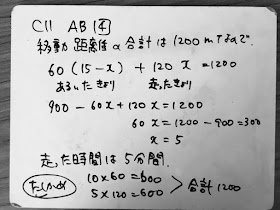 C11 AB 14
移動距離の合計は1200mなので.
60(15-x)+120x=1200
あるいたきょり 走ったきょり
900-60x+120x=1200
60x=1200-900=300
x=5
走った時間は5分間.
たしかめ 10×60=600
5×120=600 > 合計1200